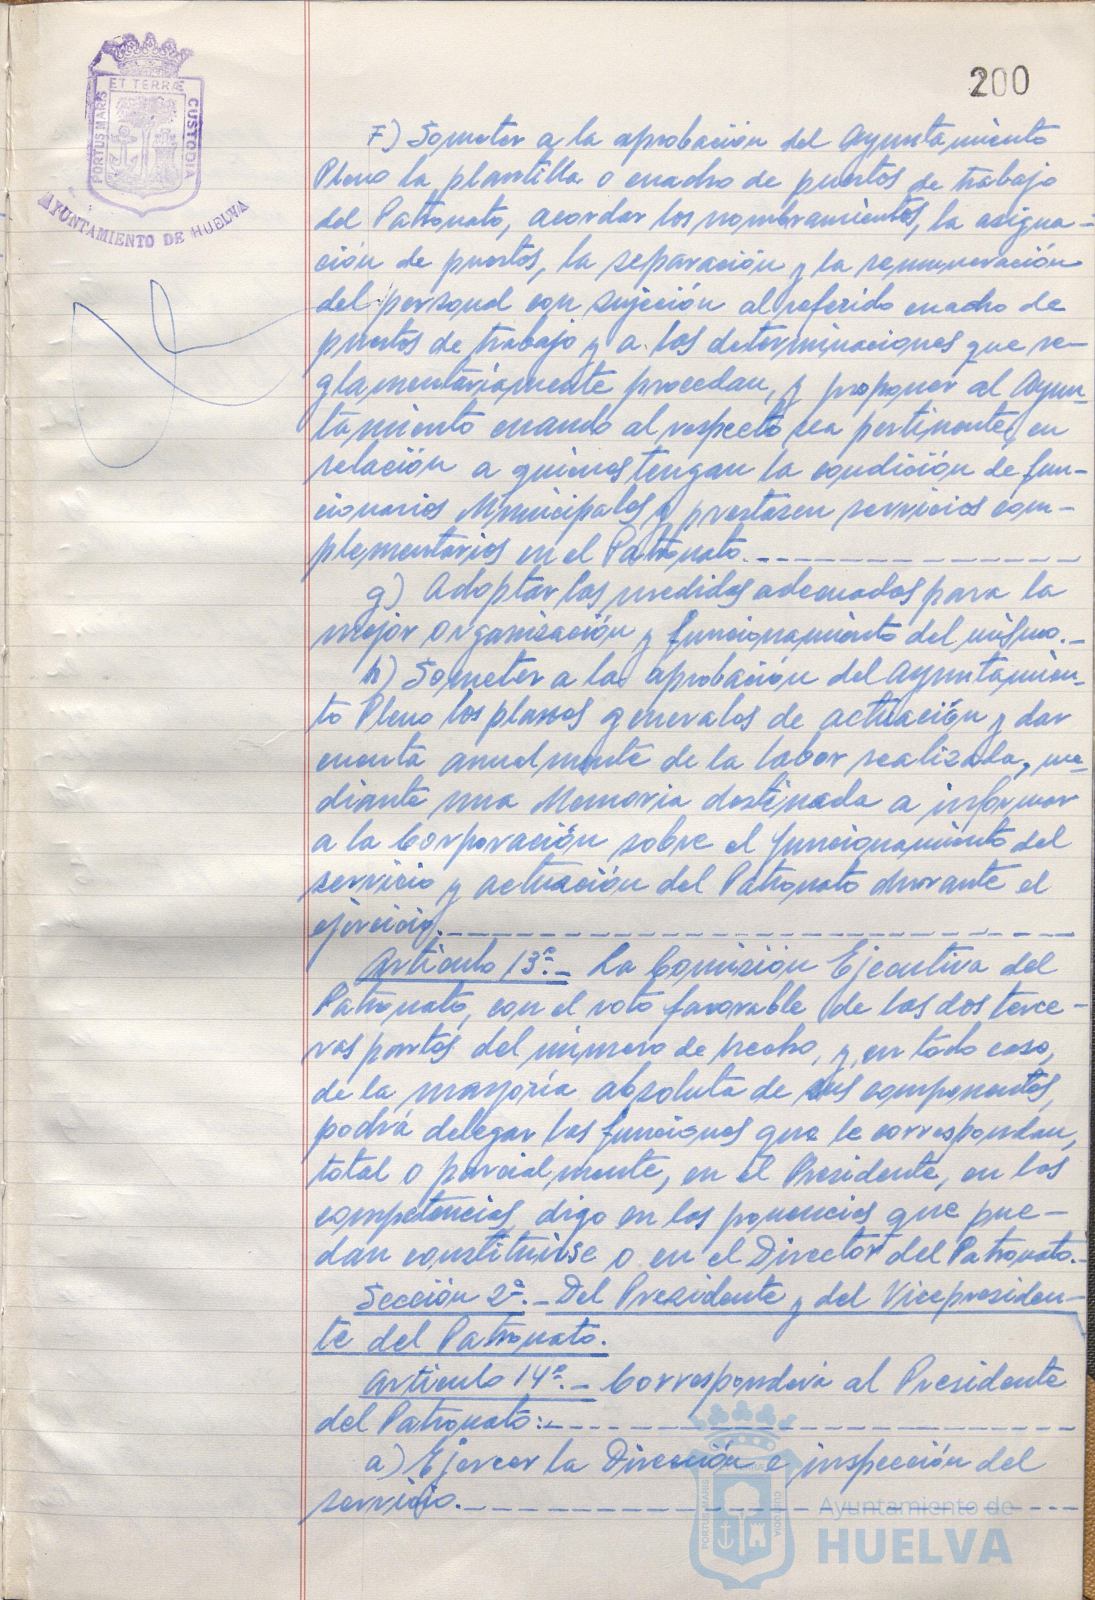 200
ET TERRÆ
PORTUS MARIS
CUSTODIA
AYUNTAMIENTO DE HUELVA
F) Someter a la aprobación del Ayuntamiento
Pleno la plantilla o cuadro de puestos de trabajo
del Patronato, acordar los nombramientos, la asigna-
ción de puestos, la separación y la remuneración
del personal con sujeción al referido cuadro de
puestos de trabajo y a las determinaciones que re-
glamentariamente procedan, y proponer al Ayun-
tamiento cuando al respecto sea pertinente, en
relación a quienes tengan la condición de fun-
cionarios Municipales y prestasen servicios com-
plementarios en el Patronato.
g) Adoptar las medidas adecuadas para la
mejor organización y funcionamiento del mismo.-
h) Someter a la aprobación del Ayuntamien-
to Pleno los planes generales de actuación y dar
cuenta anualmente de la labor realizada, me-
diante una Memoria destinada a informar
a la Corporación sobre el funcionamiento del
servicio y actuación del Patronato durante el
ejercicio.
Artículo 13º.- La Comisión Ejecutiva del
Patronato, con el voto favorable de las dos terce-
ras partes del número de hecho, y, en todo caso,
de la mayoría absoluta de sus componentes,
podrá delegar las funciones que le correspondan,
total o parcialmente, en el Presidente, en las
competencias, digo en las ponencias que pue-
dan constituirse o en el Director del Patronato.-
Sección 2ª.- Del Presidente y del Vicepresiden-
te del Patronato.
Artículo 14º.- Corresponderá al Presidente
del Patronato:-
a) Ejercer la Dirección e inspección del
servicio.
PORTUS MARIS
CUSTODIA
Ayuntamiento de
HUELVA